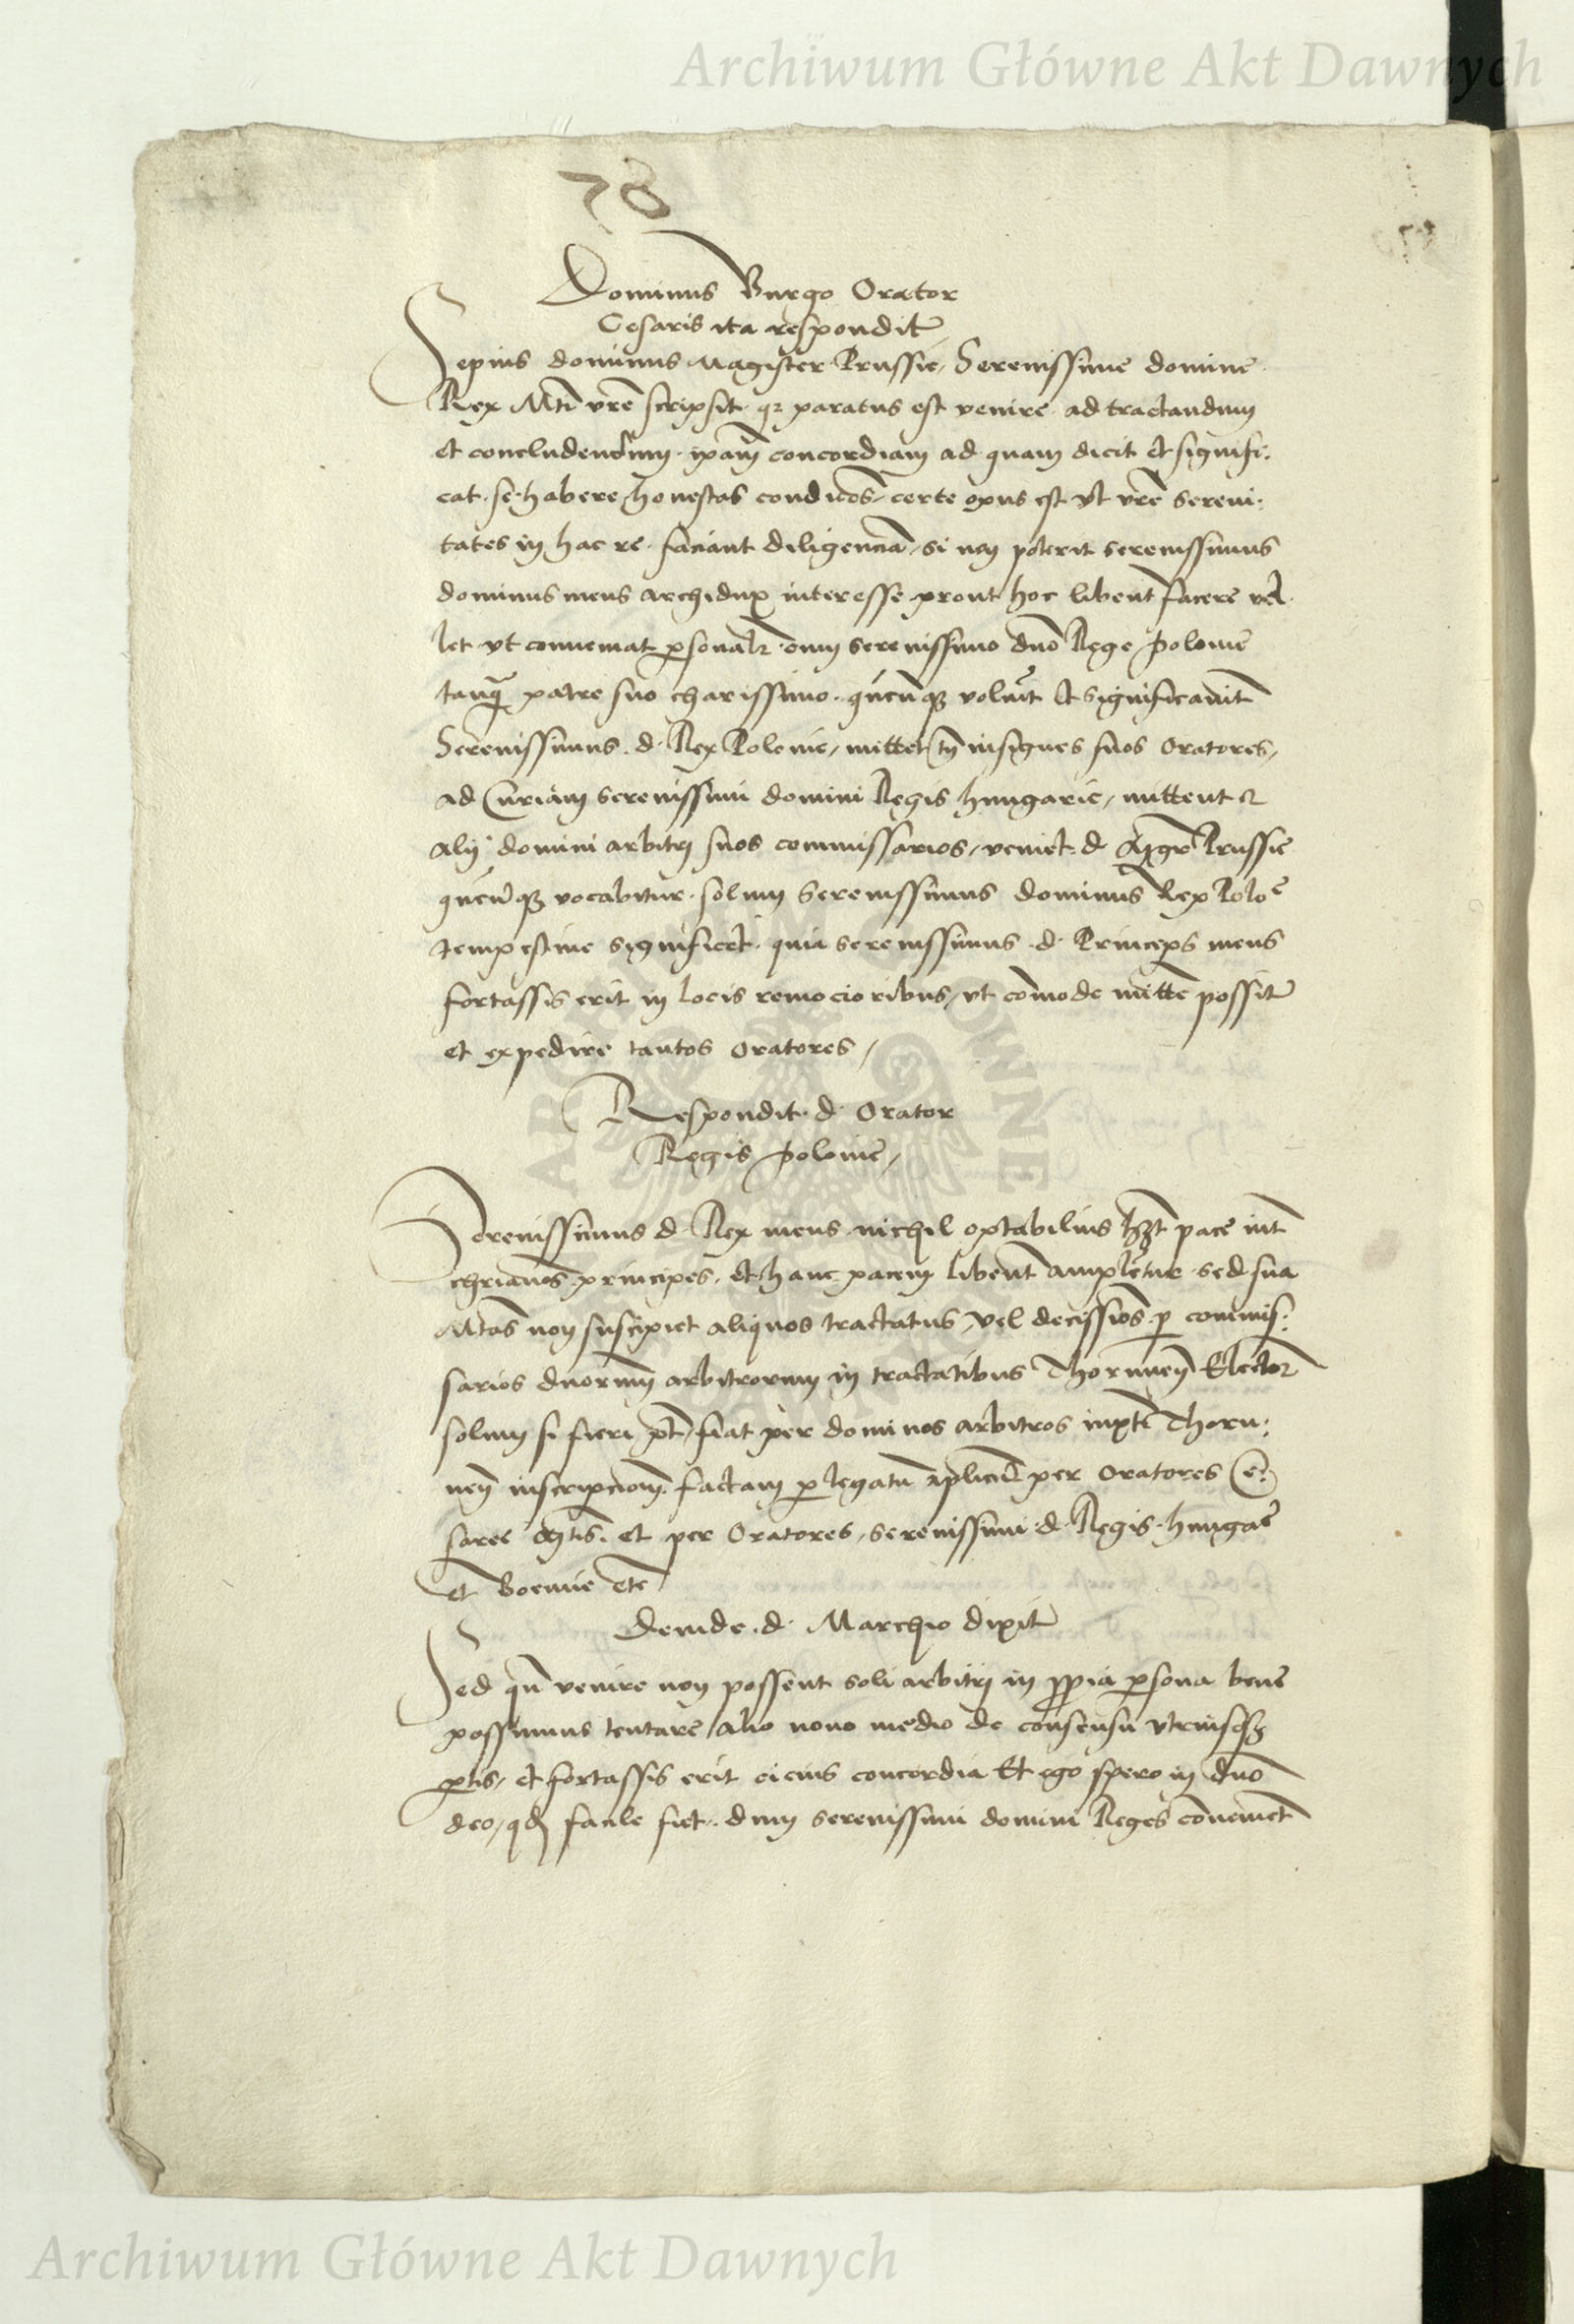 Archiwum Główne Akt Dawnych
78
Dominus Burgo Orator
Cesaris ita respondit
Sepius dominus Magister Prussie, Serenissime domine
Rex Mti vre scripsit qz paratus est venire ad tractandum
et concludendum ipam concordiam ad quam dicit et signifi:
cat se habere honestas condicões, certe opus est vt vre sereni:
tates in hac re faciant diligenciã, si non poterit serenissimus
dominus meus archidux interesse prout hoc libent facere vel
let vt conveniat psonalr cum serenissimo dno Rege Polonie
tanq̃ patre suo charissimo quencũqz volũit et significauit
Serenissimus d. Rex Polonie, mittet insignes suos Oratores,
ad Curiam serenissimi domini Regis hungarie, mittent
alij domini arbitrj suos commissarios, veniet d. Mgr Prussie
quencũqz vocabitur solum serenissimus dominus Rex Poloe
tempestiue significet quia serenissimus d. Princeps meus
fortassis erit in locis remocioribus, vt cõmode mittẽ possit
et expedire tantos Oratores,
Respondit d. Orator
Regis Polonie,
Serenissimus d. Rex meus nichil optabilius hzt pace int
chrianos principes, et hanc pacem libent amplẽtur sed sua
Mtas non suscipiet aliquos tractatus vel decissiões p commis:
sarios duorum arbitrorum in tractatibus Thorunen Electoꝝ
solum si fieri pt, fiat per dominos arbitros iuxtã Thoru:
nen inscripcionẽ factam p legatũ aplicũ per Oratores Ce:
saree Mtis. et per Oratores serenissimi d. Regis hungae
et Boemie etc
Deinde d. Marchio dixit
Sed qñ venire non possent soli arbitrj in ppria psona bene
possumus tentare alio nouo medio de consensu vtriusqz
ptis, et fortassis erit cicius concordia Et ego spero in dno
deo, qd facile fiet dum serenissimi domini Reges conueniet
Archiwum Główne Akt Dawnych